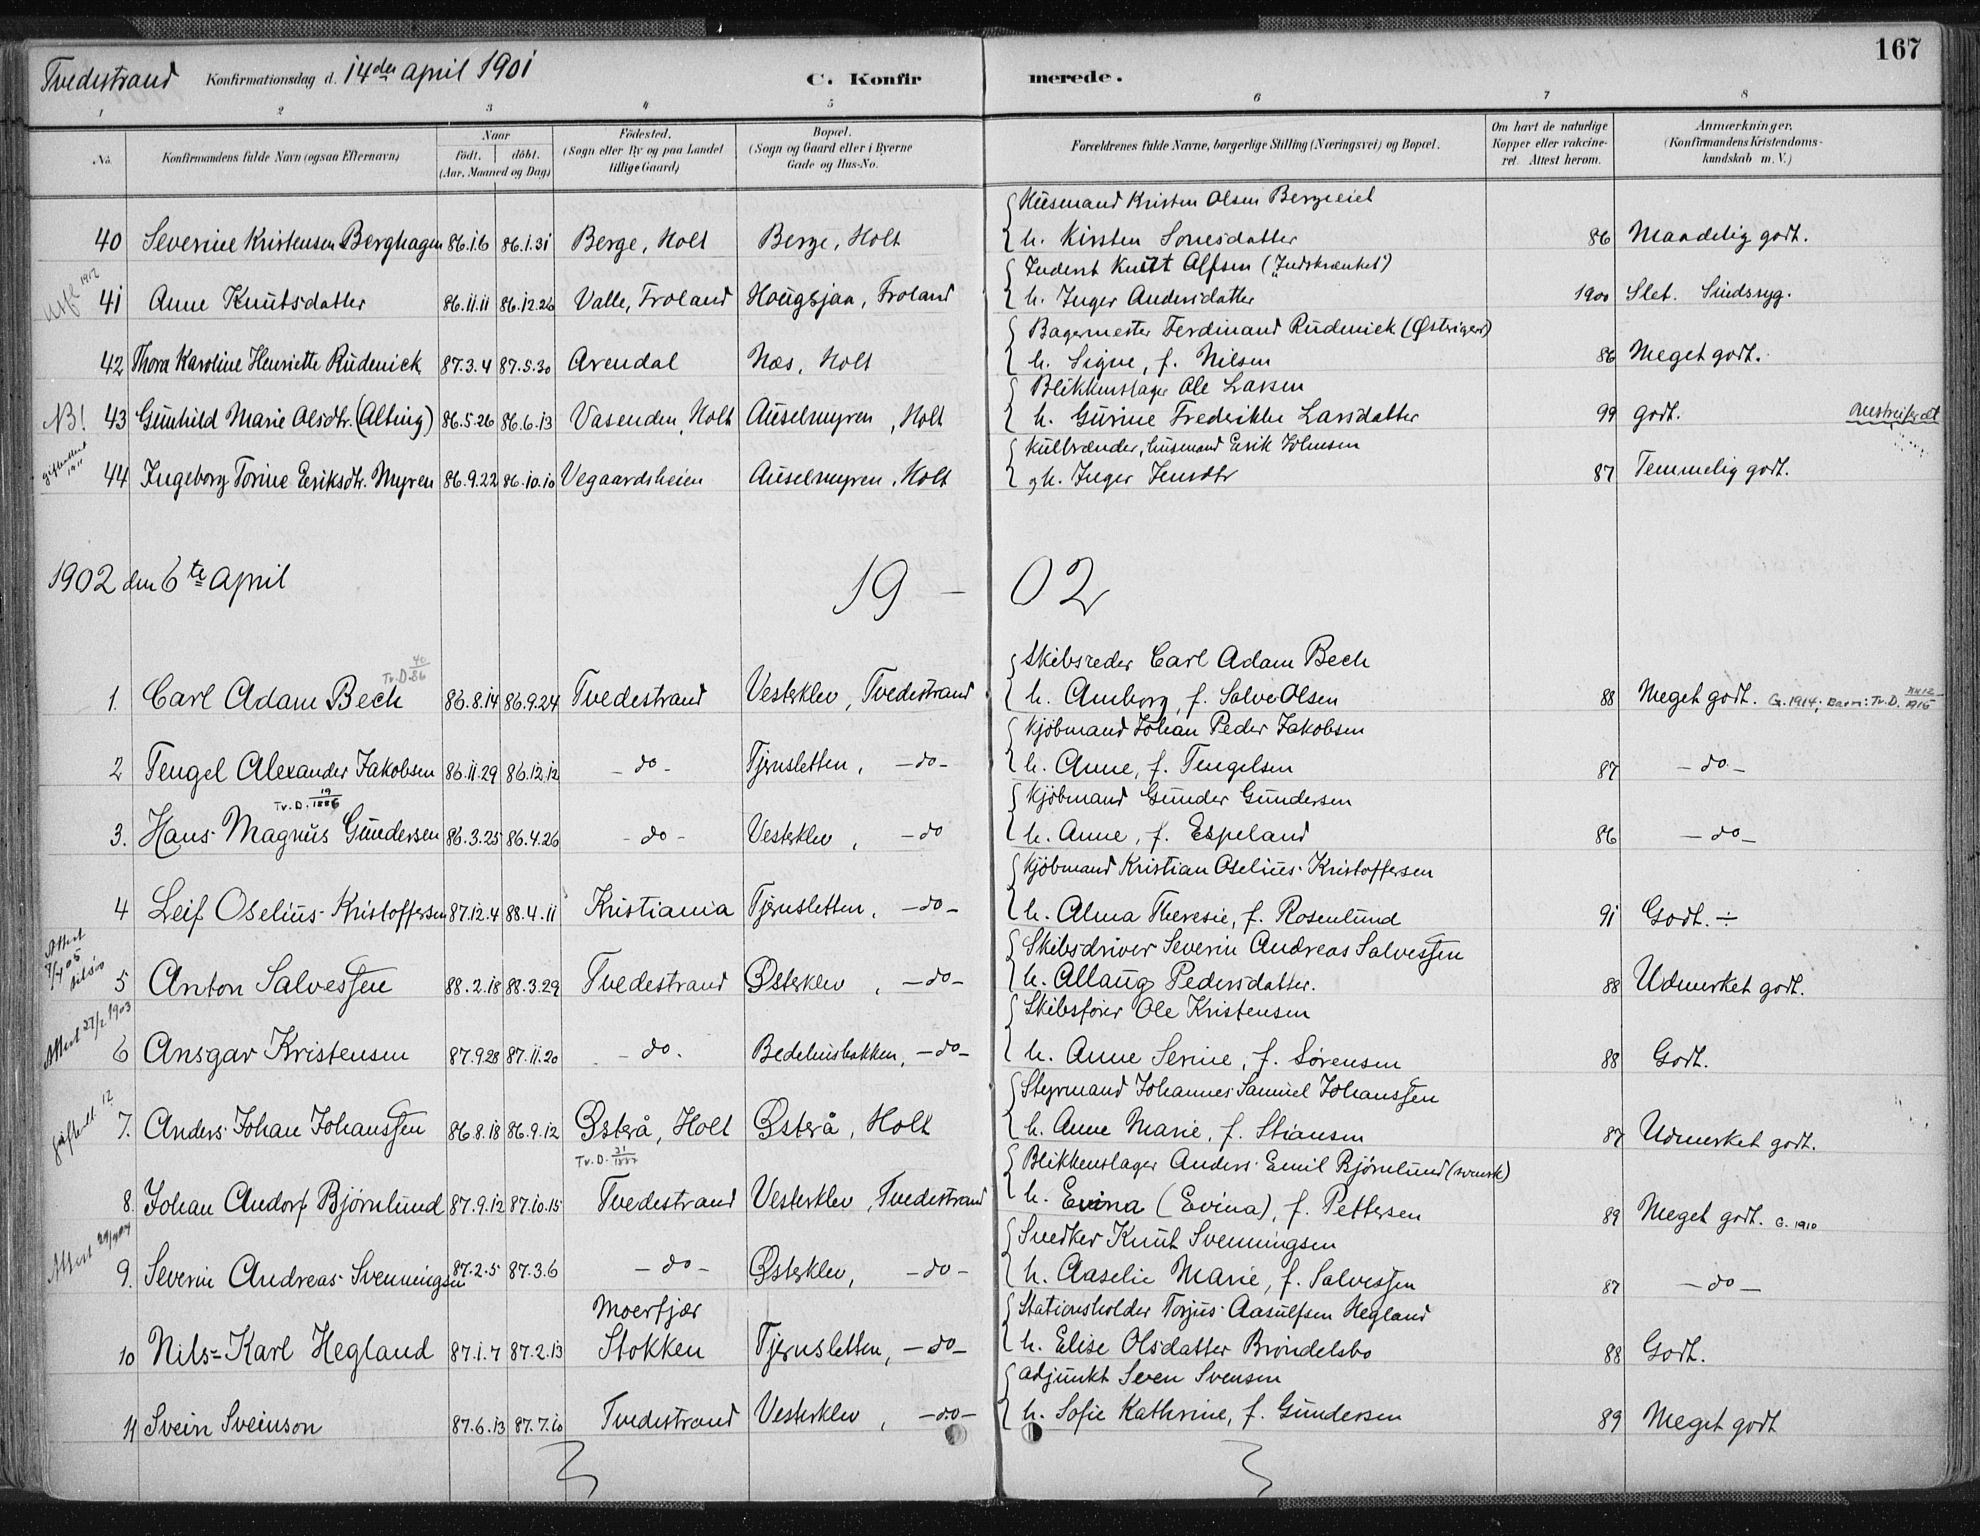 167
Tvedestrand Konfirmationsdag d. 14de april 1901 C. Konfirmerede.
1 2 3 4 5 6 7 8
No. Konfirmandens fulde Navn (ogsaa Efternavn) Naar födt. döbt. (Aar, Maaned og Dag) Födested. (Sogn eller By og paa Landet tillige Gaard) Bopæl. (Sogn og Gaard eller i Byerne Gade og Hus-No. Forældrenes fulde Navne, borgerlige Stilling (Næringsvei) og Bopæl. Om havt de naturlige Kopper eller vakcineret. Attest herom. Anmærkninger. (Konfirmandens Kristendomskundskab m. V.)
Husmand Kristen Olsen Bergneiet
40 Severine Kristensen Berghagen 86.1.6 86.1.31 Berge, Holt Berge, Holt h. Kirsten Sonesdatter 86 Maadelig godt.
Inderst Knut Alfsen ("Indskrænket")
41 Anne Knutsdatter 86.11.11 86.12.26 Valle, Froland Hougsjaa, Froland h. Inger Andersdatter 1900 Slet. Sindssyg.
Bagermester Ferdinand Rudenick (Østriger)
42 Thora Karoline Henriette Rudenick 87.3.4 87.5.30 Arendal Næs, Holt h. Signe, f. Nilsen 86 Meget godt.
Blikkenslager Ole Larsen
NB! 43 Gunhild Marie Olsdtr. (Alting) 86.5.26 86.6.13 Vasenden, Holt Auselmyren, Holt h. Gurine Frederikke Larsdatter 99 godt. omstreiferalt
Kulbrænder, husmand Erik Johnsen
44 Ingeborg Torine Eriksdtr. Myren 86.9.22 86.10.10 Vegaardsheien Auselmyren, Holt h. Inger Jensdtr 87 Temmelig godt.
1902 den 6te april 19 - 02
Tv.D. 40/86
Skibsreder Carl Adam Bech
1. Carl Adam Bech 86.8.14 86.9.24 Tvedestrand Vesterklev, Tvedestrand h. Amborg, f. Salve Olsen 88 Meget godt. G. 1914; Barn: Tv.D.
Kjöbmand Johan Peder Jakobsen
2 Tengel Alexander Jakobsen 86.11.29 86.12.12 - do - Tjernsletten, - do - h. Anne, f. Tengelsen 87 - do -
Tv.D. 19/1886
Kjöbmand Gunder Gundersen
3. Hans Magnus Gundersen 86.3.25 86.4.26 - do - Vesterklev, - do h. Anne, f. Espeland 86 - do -
Kjöbmand Kristian Oselius Kristoffersen
4 Leif Oselius Kristoffersen 87.12.4 88.4.11 Kristiania Tjernsletten, - do - h. Alma Theresie, f. Rosenlund 91 Godt. ÷
Attest 7/4 05
Skibsdriver Severin Andreas Salvessen
5 Anton Salvessen 88.2.18 88.3.29 Tvedestrand Østerklev, - do - h. Allaug Pedersdatter. 88 Udmerket godt.
Attest 27/2 1903
Skibsfører Ole Kristensen
6 Ansgar Kristensen 87.9.28 87.11.20 - do. Bedehusbakken, - do - h. Anne Serine, f. Sörensen 88 Godt.
Styrmand Johannes Samuel Johanssen
7. Anders Johan Johanssen 86.8.18 86.9.12 Østerå, Holt Østerå, Holt h. Anne Marie, f. Stiansen 87 Udmerket godt.
Tv.D. 31/1887
Blikkenslager Anders Emil Björnlund (svensk)
8. Johan Andorf Björnlund 87.9.12 87.10.15 Tvedestrand Vesterklev, Tvedestrand h. Evina (Evina), f. Pettersen 89 Meget godt. G. 1910
Snedker Knut Svenningsen
9. Severin Andreas Svenningsen 87.2.5 87.3.6 - do - Østerklev, - do - h. Aaselie Marie, f. Salvessen 87 - do -
Moerfjær
Stationsholder Torjus Aasulfsen Hegland
10 Nils-Karl Hegland 87.1.7 87.2.13 Stokken Tjernsletten, - do - h. Elise Olsdatter Bröndelsbo 88 Godt.
Adjunkt Sven Svensen
11 Svein Sveinson 87.6.13 87.7.10 Tvedestrand Vesterklev, - do - h. Sofie Kathrine, f. Gundersen 89 Meget godt